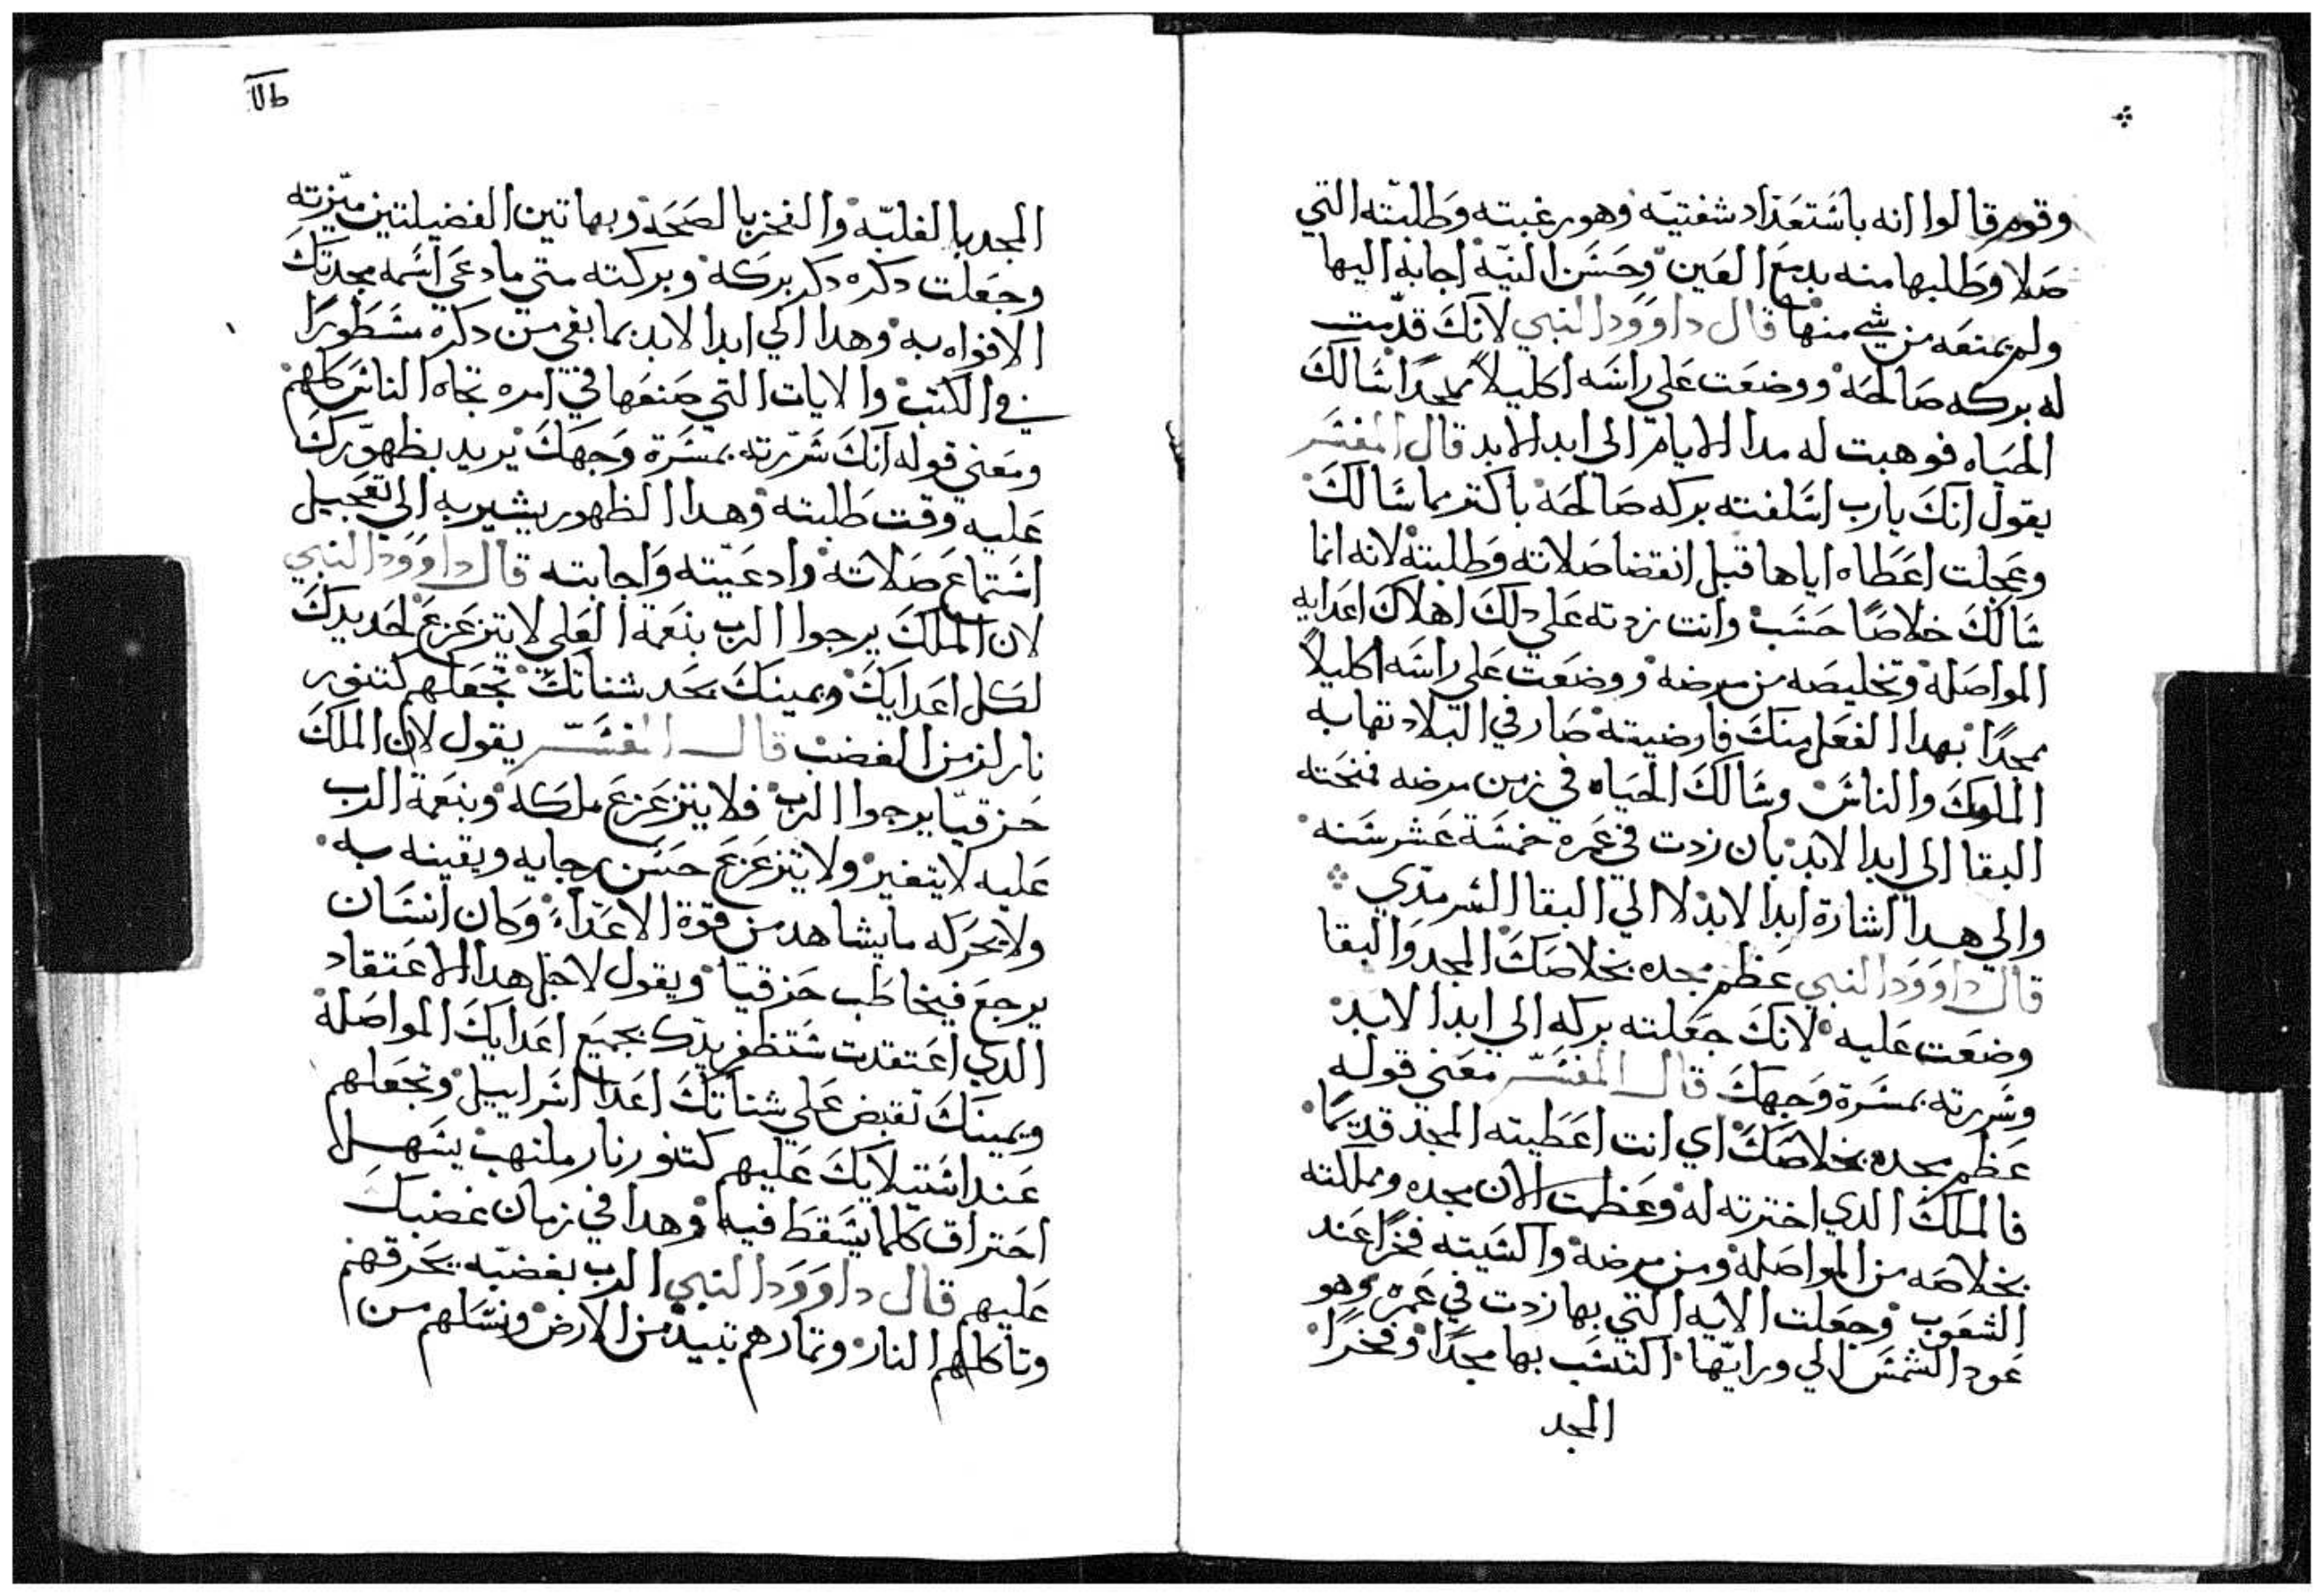 وقوم قالوا انه باستعداد شفتيه وهو رغبته وطلبته التي
صلا وطلبها منه بدمع العين وحسن النيه اجابه اليها
ولم يمنعه من شي منها قال داوود النبي لانك قدمت
له بركه صالحه ووضعت علي راسه اكليلاً ممجداً سالك
الحياه فوهبت له مدا الايام الي ابد الابد قال المفسر
يقول انك يارب اسلفته بركه صالحه باكثر مما سالك
وعجلت اعطاه اياها قبل انقضا صلاته وطلبته لانه انما
سالك خلاصًا حسب وانت زدته علي دلك اهلاك اعدايه
المواصله وتخليصه من مرضه ووضعت علي راسه اكليلاً
ممجداً بهدا الفعل منك فارضيته صار في البلاد تهابه
الملوك والناس وسالك الحياه في زمن مرضه فمنحته
البقا الي ابد الابد بان زدت في عمره خمسة عشر سنه
والي هدا اشارة ابد الابد لا الي البقا السرمدي
قال داوود النبي عظم مجده بخلاصك المجد والبقا
وضعت عليه لانك جعلته بركه الي ابد الابد
وسررته بمسرة وجهك قال المفسر معني قوله
عظم مجده بخلاصك اي انت اعطيته المجد قديمًا
فالملك الدي اخترته له وعظمت الان مجده ومملكته
بخلاصه من المواصله ومن مرضه واكسيته فخراً عند
الشعوب وجعلت الايه التي بها زدت في عمره وهو
عود الشمس الي ورايها اكتسب بها مجداً وفخراً
المجد
المجد بالغلبه والفخر بالصحه وبهاتين الفضيلتين ميزته
وجعلت دكره دكر بركه وبركته متي ما دعي اسمه مجدتك
الافواه به وهدا الي ابد الابد بما بقي من دكره مسطوراً
في الكتب والايات التي صنعها في امره تجاه الناس كلهم
ومعني قوله انك سررته بمسرة وجهك يريد بظهورك
عليه وقت طلبته وهدا الظهور يشير به الي تعجيل
استماع صلاته وادعيته واجابته قال داوود النبي
لان الملك يرجوا الرب بنعمة العلي لا يتزعزع لحد يدك
لكل اعدايك ويمينك بحد شناتك تجعلهم كتنور
نار لزمن الغضب قال المفسر يقول لان الملك
حزقيا يرجوا الرب فلا يتزعزع ملكه وبنعمة الرب
عليه لا يتغير ولا يتزعزع حسن رجايه ويقينه به
ولا يحركه ما يشاهد من قوة الاعداء وكان انسان
يرجع فيخاطب حزقيا ويقول لاجل هدا الاعتقاد
الدي اعتقدت ستظفر يدك بجميع اعدايك المواصله
ويمينك تقبض علي شناتك اعدا اسراييل وتجعلهم
عند استيلايك عليهم كتنور نار ملتهب يسهل
احتراق كلما يسقط فيه وهدا في زمان غضبك
عليهم قال داوود النبي الرب بغضبه يحرقهم
وتاكلهم النار وتمارهم تبيد من الارض ونسلهم من